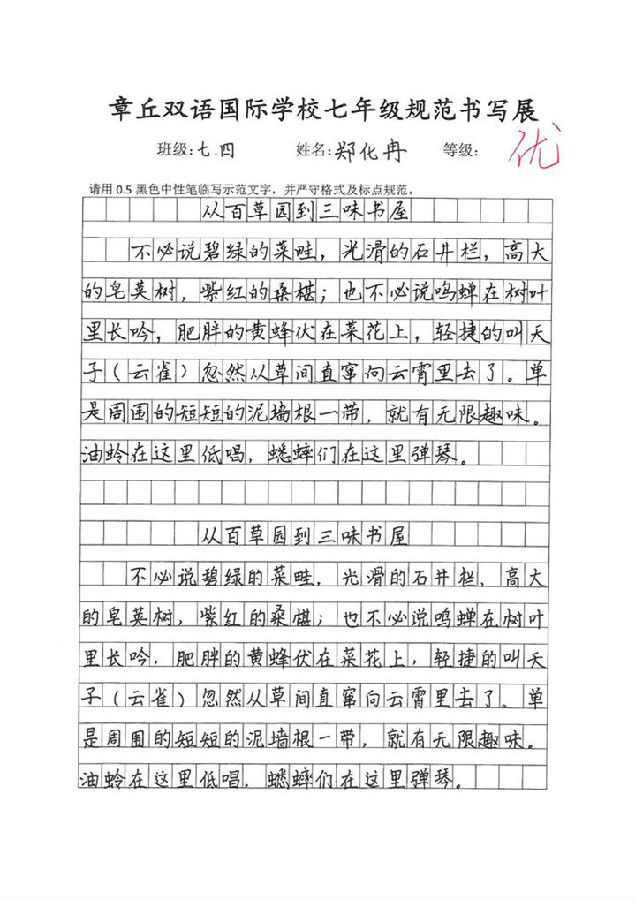 章丘双语国际学校七年级规范书写展
班级:七.四 姓名:郑化冉 等级: 优
请用 0.5 黑色中性笔临写示范文字，并严守格式及标点规范。
从百草园到三味书屋
不必说碧绿的菜畦，光滑的石井栏，高大
的皂荚树，紫红的桑椹；也不必说鸣蝉在树叶
里长吟，肥胖的黄蜂伏在菜花上，轻捷的叫天
子（云雀）忽然从草间直窜向云霄里去了。单
是周围的短短的泥墙根一带，就有无限趣味。
油蛉在这里低唱，蟋蟀们在这里弹琴。
从百草园到三味书屋
不必说碧绿的菜畦，光滑的石井栏，高大
的皂荚树，紫红的桑椹；也不必说鸣蝉在树叶
里长吟，肥胖的黄蜂伏在菜花上，轻捷的叫天
子（云雀）忽然从草间直窜向云霄里去了。单
是周围的短短的泥墙根一带，就有无限趣味。
油蛉在这里低唱，蟋蟀们在这里弹琴。